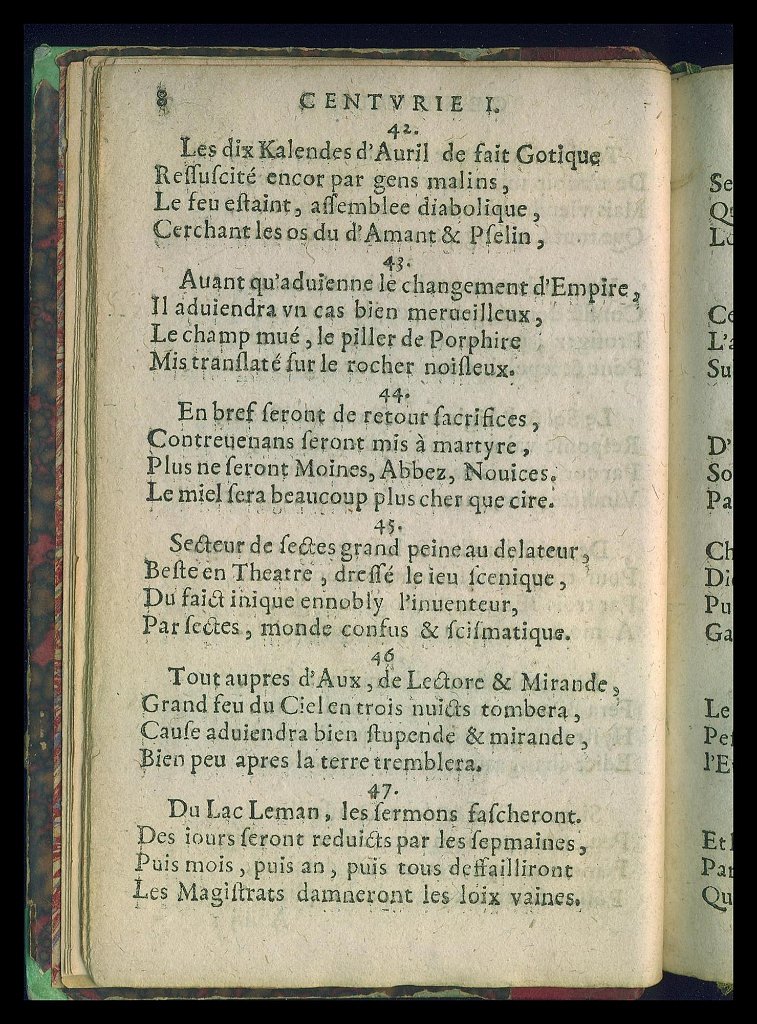 8 CENTVRIE I.
42.
Les dix Kalendes d'Auril de fait Gotique
Reſſuſcité encor par gens malins,
Le feu eſtaint, aſſemblee diabolique,
Cerchant les os du d'Amant & Pſelin,
43.
Auant qu'aduienne le changement d'Empire,
Il aduiendra vn cas bien merueilleux,
Le champ mué, le piller de Porphire
Mis tranſlaté ſur le rocher noiſleux.
44.
En bref ſeront de retour ſacrifices,
Contreuenans ſeront mis à martyre,
Plus ne ſeront Moines, Abbez, Nouices.
Le miel ſera beaucoup plus cher que cire.
45.
Secteur de ſectes grand peine au delateur,
Beſte en Theatre, dreſſé le ieu ſcenique,
Du faict inique ennobly l'inuenteur,
Par ſectes, monde confus & ſciſmatique.
46
Tout aupres d'Aux, de Lectore & Mirande,
Grand feu du Ciel en trois nuicts tombera,
Cauſe aduiendra bien ſtupende & mirande,
Bien peu apres la terre tremblera.
47.
Du Lac Leman, les ſermons faſcheront.
Des iours ſeront reduicts par les ſepmaines,
Puis mois, puis an, puis tous deffailliront
Les Magiſtrats damneront les loix vaines.
Se
Qu
Ce
L'a
Su
D'
So
Pa
Ch
Di
Pu
Ga
Le
Pet
l'E
Et
Par
Qu